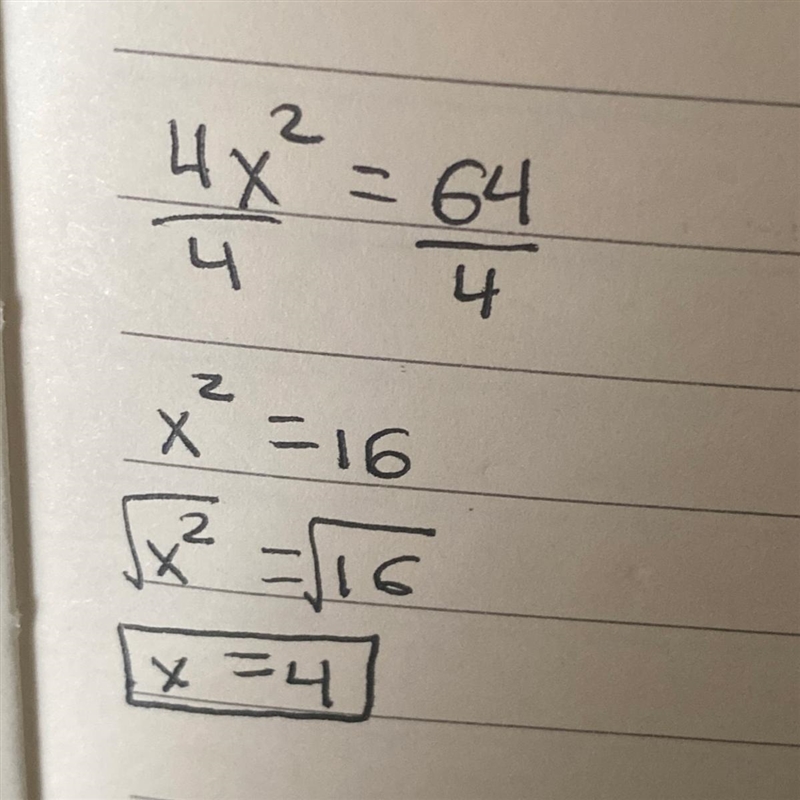 4x² = 64
4 4
x² = 16
√x² = √16
x = 4